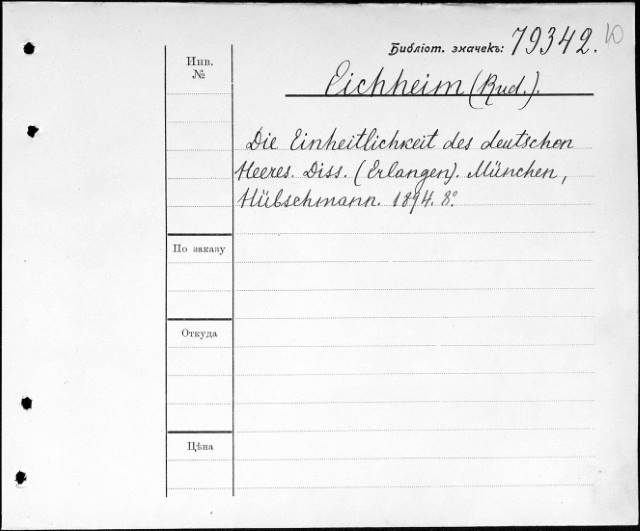 Библіот. значекъ: 79342. Ю
Инв.
№
Eichheim (Rud.).
Die Einheitlichkeit des deutschen
Heeres. Diss. (Erlangen). München,
Hübschmann. 1894. 8°.
По заказу
Откуда
Цѣна